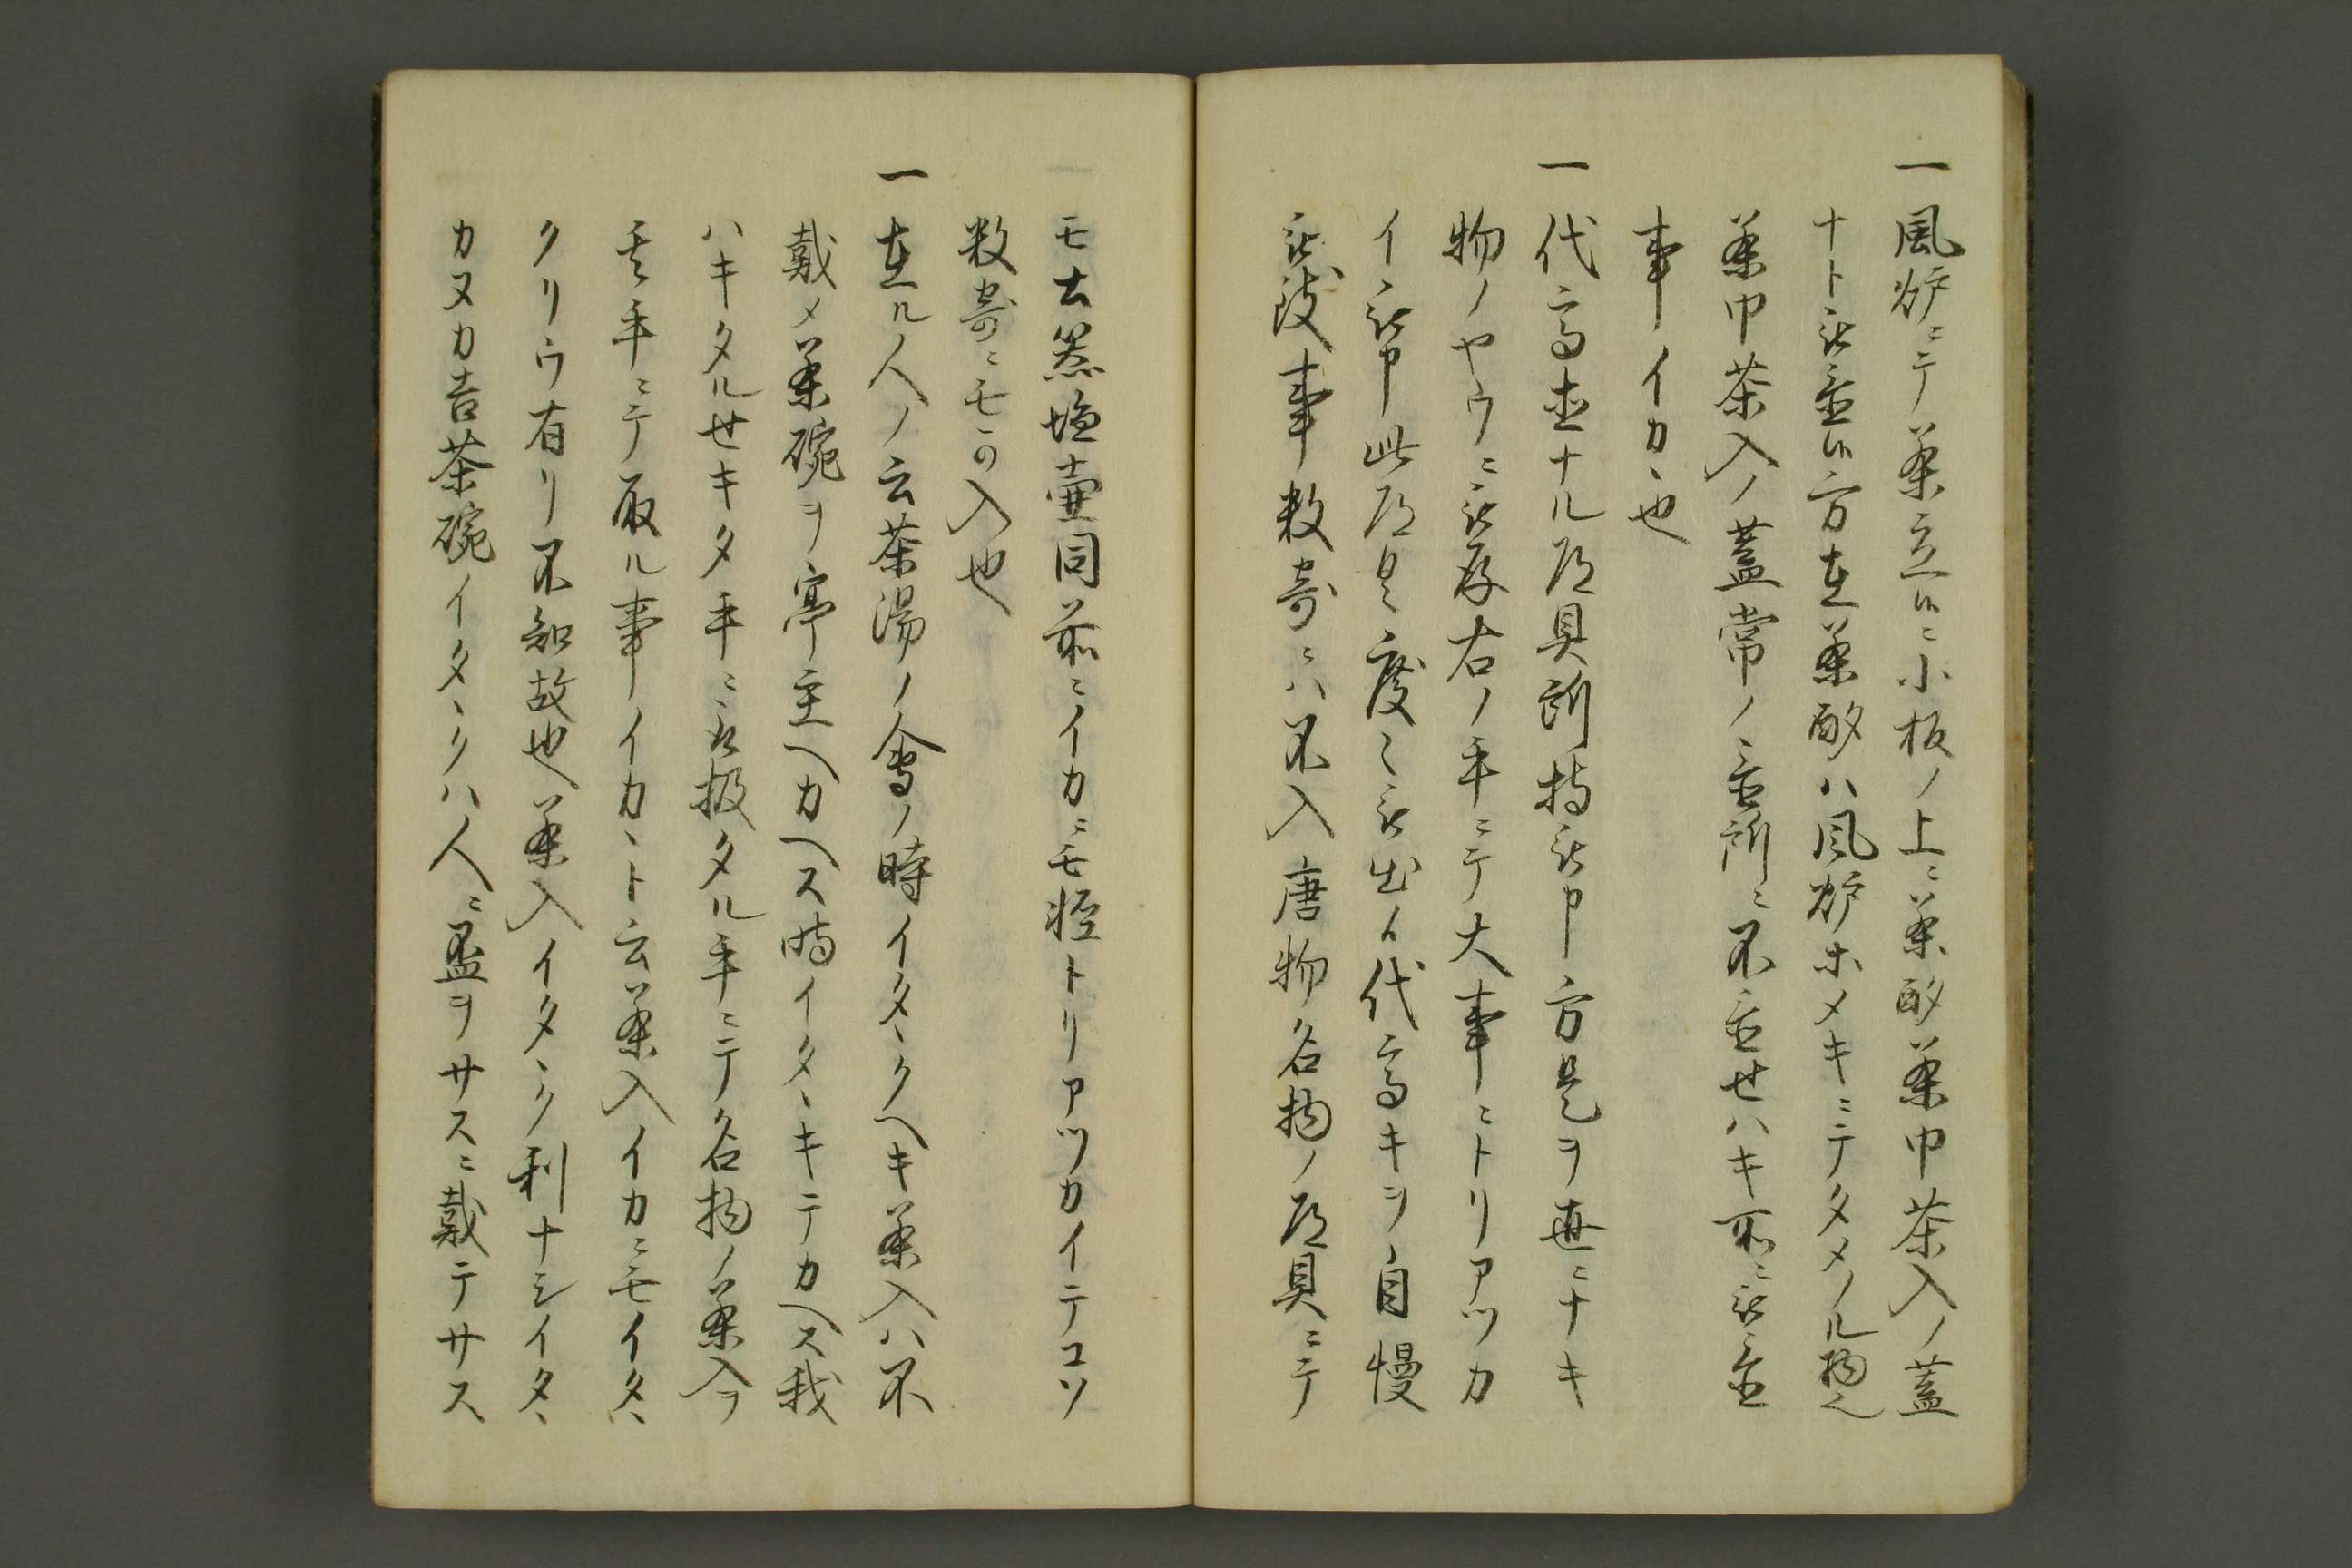 一風炉ニテ茶立ルニ小板ノ上ニ茶酌茶巾茶入ノ蓋
ナト被置候方在茶酌ハ風炉ホメキニテタメノル物也
茶巾茶入ノ蓋常ノ置所ニ不置せハキ所ニ被置
事イカヽ也
一代高直ナル道具所持被申方是ヲ世ニナキ
物ノヤウニ被存右ノ手ニテ大事ニトリアツカ
イ被申此道具度々被出候代高キヲ自慢
被成事数寄ニハ不入唐物名物ノ道具ニテ
モ古茶塩壷同前ニイカニモ軽トリアツカイテコソ
数寄ニモ可入也
一在ル人ノ云茶湯ノ會ノ時イタヽクヘキ茶入ハ不
戴メ茶碗ヲ亭主ヘカヘス時イタヽキテカヘス我
ハキタルせキタ手ニ被扱タル手ニテ名物ノ茶入ヲ
其手ニテ取ル事イカヽト云茶入イカニモイタヽ
クリウ有リ不知故也茶入イタヽク利ナシイタヽ
カヌカ吉茶碗イタヽクハ人ニ盃ヲサスニ戴テサス